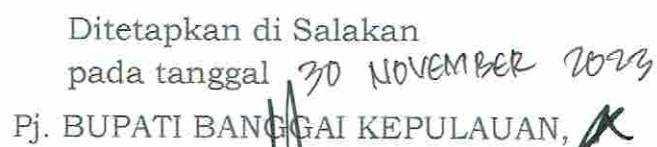 Ditetapkan di Salakan
pada tanggal 30 NOVEMBER 2023
Pj. BUPATI BANGGAI KEPULAUAN,